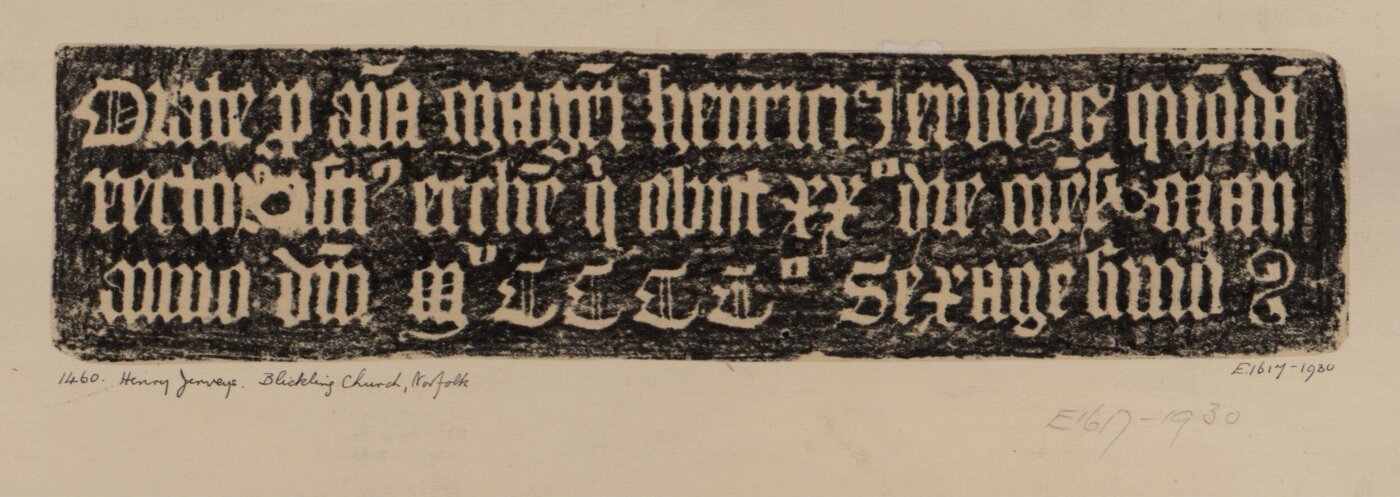 Orate p aīa magrī henrici Jerveys quōdā
rectoris isti⁹ ecclie q̄ obiit xxº die mēs maii
anno dnī Mº CCCCº Sexagesimo
1460. Henry Jerveys. Blickling Church, Norfolk
E.1617-1930
E1617-1930